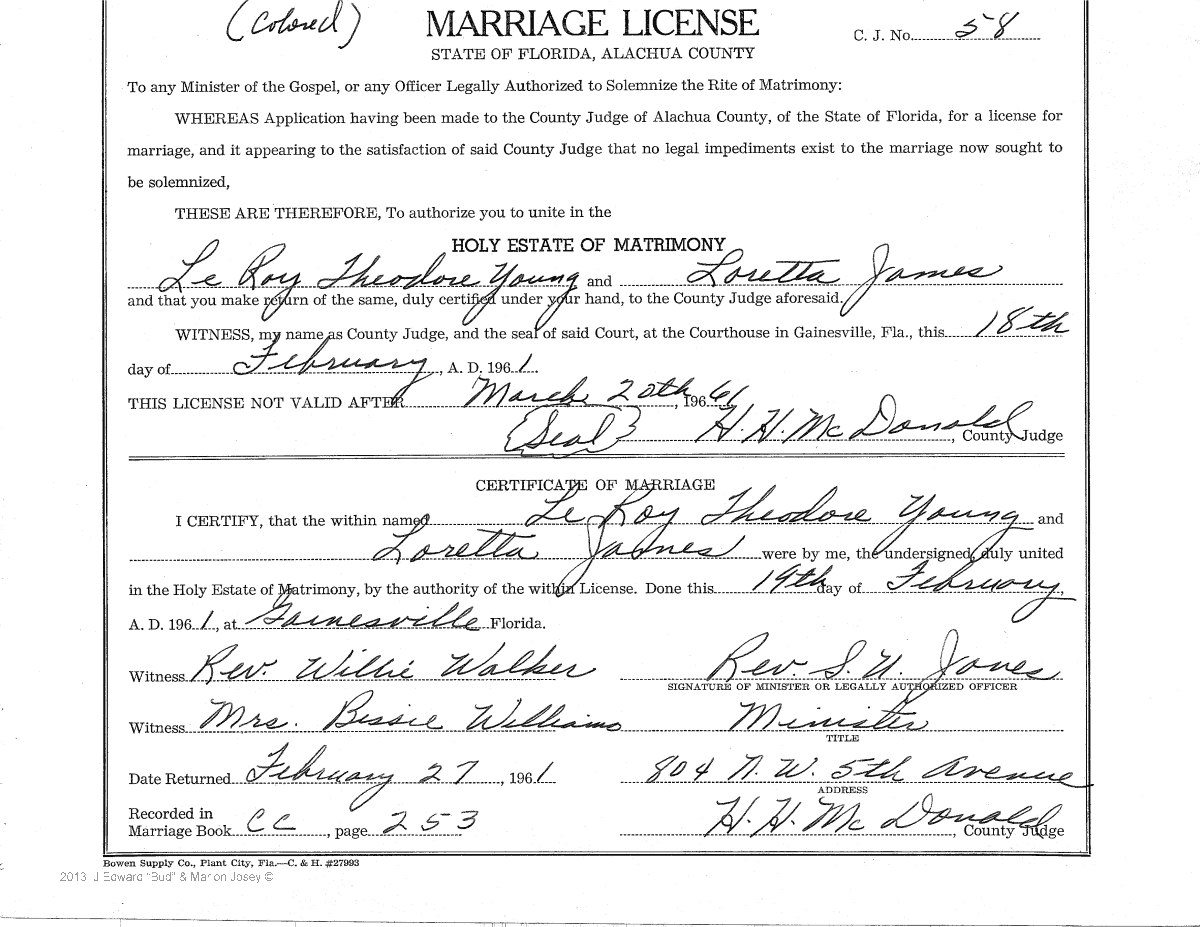 (Colored)
MARRIAGE LICENSE
C. J. No. 58
STATE OF FLORIDA, ALACHUA COUNTY
To any Minister of the Gospel, or any Officer Legally Authorized to Solemnize the Rite of Matrimony:
WHEREAS Application having been made to the County Judge of Alachua County, of the State of Florida, for a license for
marriage, and it appearing to the satisfaction of said County Judge that no legal impediments exist to the marriage now sought to
be solemnized,
THESE ARE THEREFORE, To authorize you to unite in the
HOLY ESTATE OF MATRIMONY
Le Roy Theodore Young and Loretta James
and that you make return of the same, duly certified under your hand, to the County Judge aforesaid.
WITNESS, my name as County Judge, and the seal of said Court, at the Courthouse in Gainesville, Fla., this 18th
day of February, A. D. 1961
THIS LICENSE NOT VALID AFTER March 20th, 196 61
(Seal) H. H. McDonald, County Judge
CERTIFICATE OF MARRIAGE
I CERTIFY, that the within named Le Roy Theodore Young and
Loretta James were by me, the undersigned, duly united
in the Holy Estate of Matrimony, by the authority of the within License. Done this 19th day of February,
A. D. 1961, at Gainesville Florida.
Witness Rev. Willie Walker Rev. S. U. Jones
SIGNATURE OF MINISTER OR LEGALLY AUTHORIZED OFFICER
Witness Mrs. Bissie Williams Minister
TITLE
Date Returned February 27, 1961 804 N. W. 5th Avenue
ADDRESS
Recorded in
Marriage Book CC, page 253 H. H. McDonald, County Judge
Bowen Supply Co., Plant City, Fla.—C. & H. #27993
2013 J Edward "Bud" & Marion Josey ©